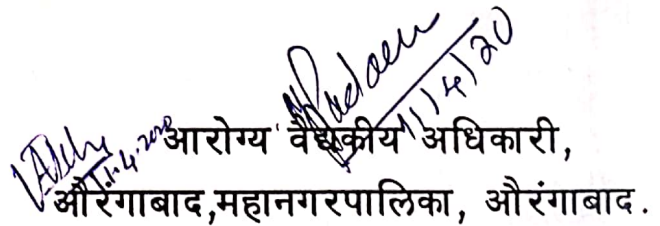 11/4/20
1.4.2020
आरोग्य वैद्यकीय अधिकारी,
औरंगाबाद,महानगरपालिका, औरंगाबाद.